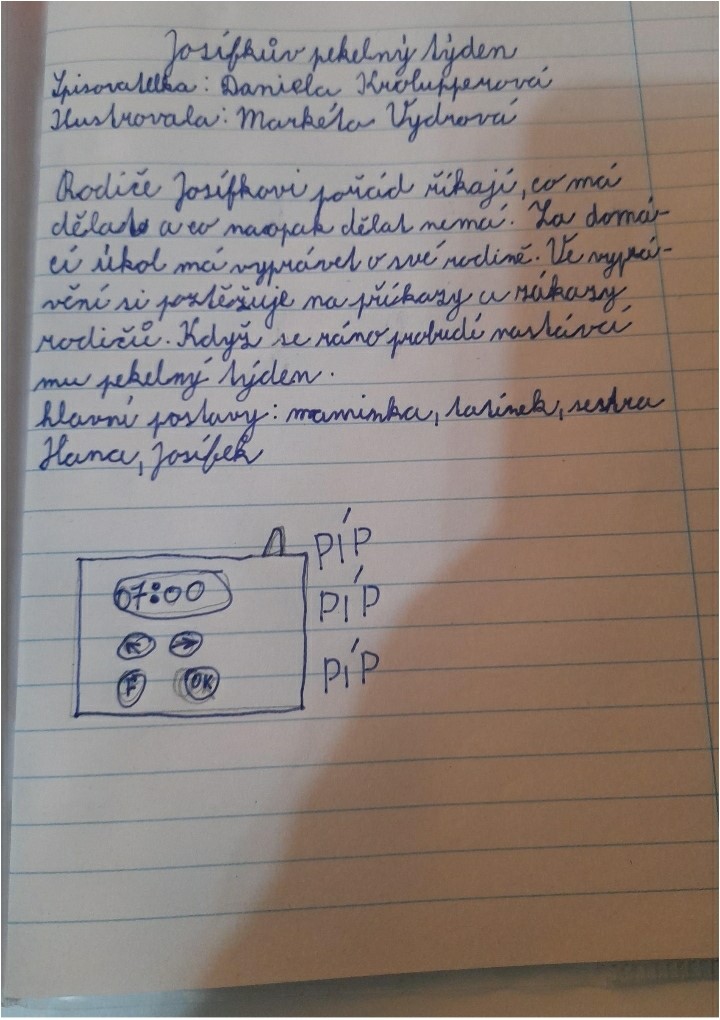 Josífkův pekelný týden
Spisovatelka: Daniela Krolupperová
Ilustrovala: Markéta Vydrová
Rodiče Josífkovi pořád říkají, co má
dělat a co naopak dělat nemá. Za domá-
cí úkol má vyprávět o své rodině. Ve vyprá-
vění si postěžuje na příkazy a zákazy
rodičů. Když se ráno probudí nastává
mu pekelný týden.
hlavní postavy: maminka, tatínek, sestra
Hana, Josífek
PÍP
07:00 PÍP
F OK PÍP